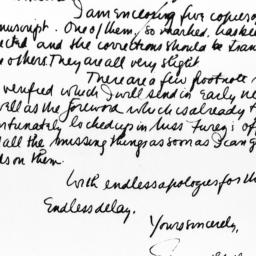 I am enclosing five copies of
nuscript. One of them, so marked, has been
ected and the corrections should be tran
e others. They are all very slight
There are a few footnote r
verified which I will send in early ne
well as the foreword which is already t
ortunately locked up in Miss Furey's of
d all the missing things as soon as I can g
ds on them.
With endless apologies for th
Endless delay.
Yours sincerely,